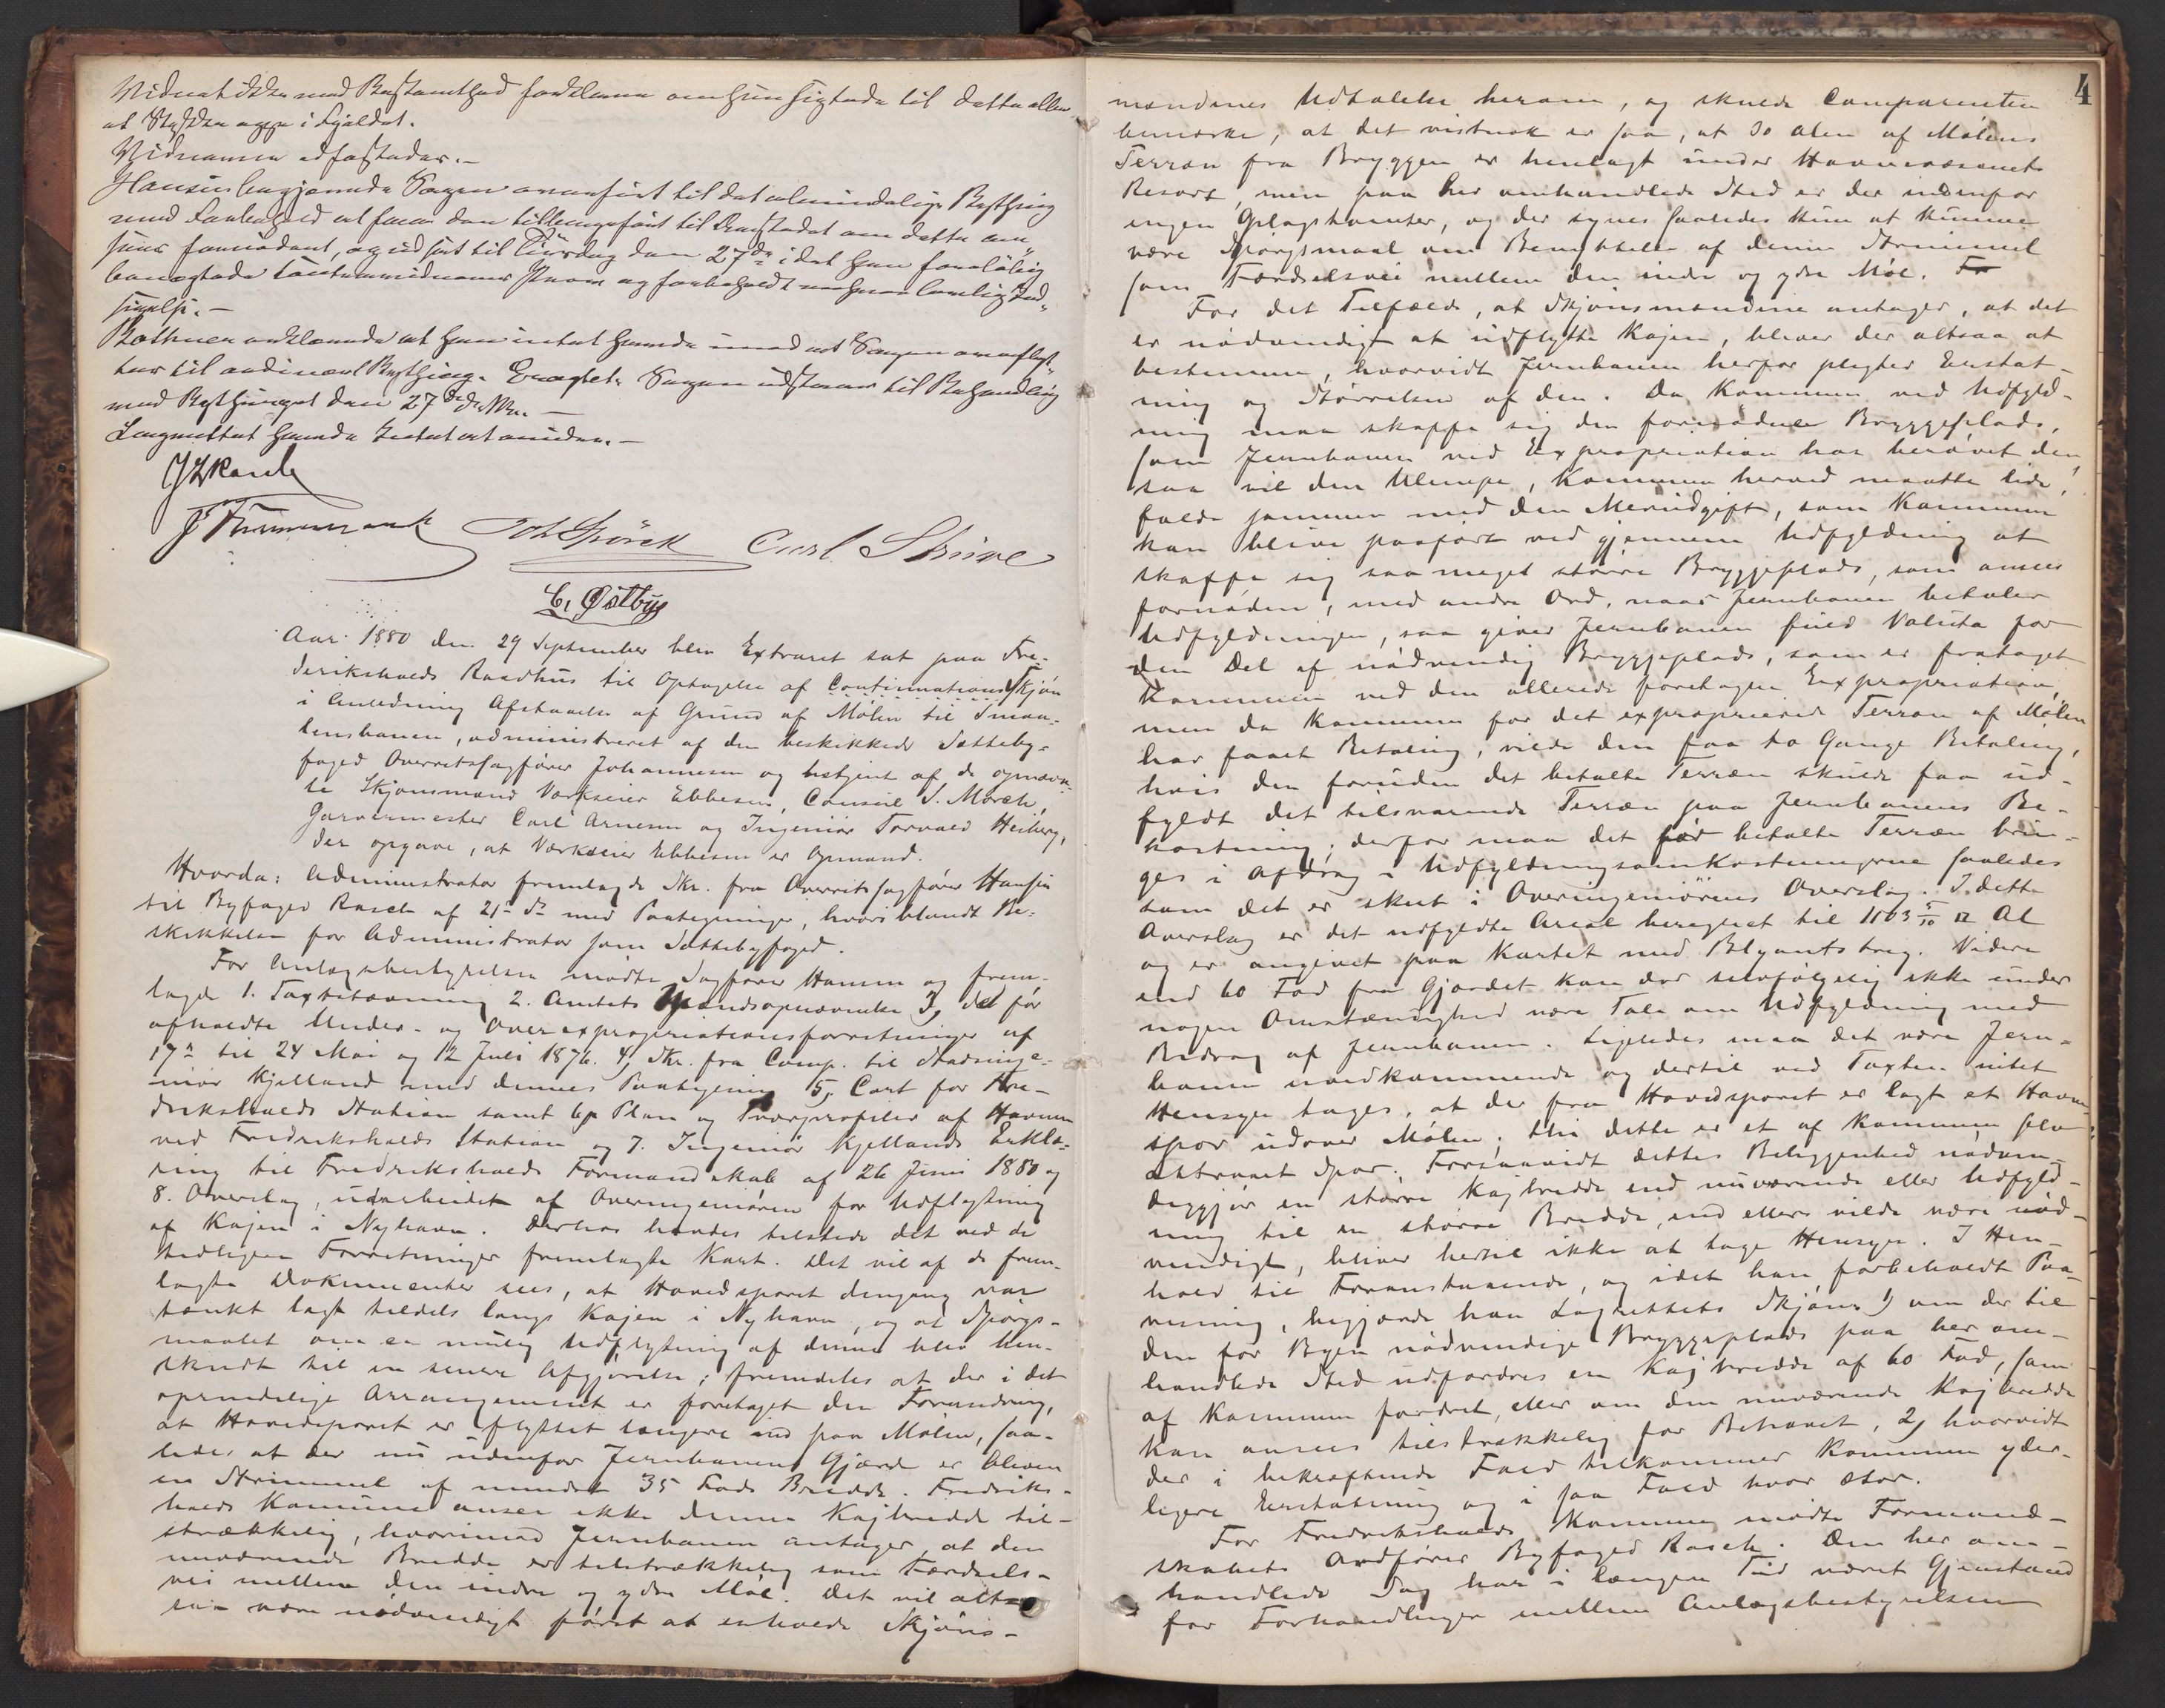 Vidnet ikke med Bestemthed forklare om hun sigtede til dette eller
at Stykke oppe i Fjeldet.
Vidnerne edfæstedes.-
Hansen begjærede Sagen overført til det almindelige Bything
med Forbehold at faae den tilbageført til Aastedet om dette an-
sees fornødent, og udsat til Tirsdag den 27de idet han foreløbig
benegtede Contravidnernes Prov og forbeholdt vedkommende lovlig Imøde-
gaaelse.-
Bothner erklærede at han intet havde imod at Sagen overflyt-
tes til ordinært Bything. Eragtet: Sagen udstaar til Behandling
ved Bythinget den 27de ds. Mdr. -
Laugrettet havde Intet at erindre.-
J Rasch
J Timmermark Joh Spörck Carl Skrive
C. Østbye
Aar 1880 den 29 September blev Extraret sat paa Fre-
derikshalds Raadhus til Optagelse af Continuationsskjøn
i Anledning Afstaaelse af Grund af Mølen til Smaa-
lensbanen, administreret af den beskikkede Sætteby-
foged Overretssagfører Johannesen og betjent af de opnævn-
te Skjønsmænd Værkseier Ebbesen, Consul S. Mørch,
Garvermester Carl Arnesen og Ingeniør Torvald Heiberg,
der opgave, at Værkseier Ebbesen er Opmand.
Hvorda: Administrator fremlagde Skr. fra Overretssagfører Hansen
til Byfoged Rasch af 21de ds med Paategninger, hvoriblandt Be-
skikkelse for Administrator som Sættebyfoged.
For Anlægsbestyrelsen mødte Sagfører Hansen og frem-
lagde 1. Taxtstævning 2. Amtets Mændsopnævnelse 3, det før
afholdte Under- og Overexpropriationsforretninger af
17de til 24 Mai og 12 Juli 1876. 4, Skr. fra Comp. til Stadsinge-
niør Kjelland med dennes Paategning 5, Cart for Fre-
drikshalds Station samt 6, Plan og Tværprofiler af Havnen
ved Fredrikshalds Station og 7. Ingeniør Kjellands Erklæ-
ring til Fredrikshalds Formandskab af 26 Juni 1880 og
8. Overslag, udarbeidet af Overingeniøren for Udflytning
af Kajen i Nyhavn. Derhos havdes tilstede det ved de
tidligere Forretninger fremlagte Kart. Det vil af de frem-
lagte Dokumenter sees, at Hovedsporet dengang var
tænkt lagt tildels langs Kajen i Nyhavn, og at Spørgs-
maalet om en mulig Udflytning af denne blev hen-
skudt til en senere Afgjørelse; fremdeles at der i det
oprindelige Arrangement er foretaget den Forandring,
at Hovedsporet er flyttet længere ind paa Mølen, saa-
ledes at der nu udenfor Jernbanens Gjærde er bleven
en Strimmel af mindst 35 Fods Bredde. Fredriks-
halds Kommune anser ikke denne Kajbredde til-
strækkelig, hvorimod Jernbanen antager at den
nuværende Bredde er tilstrækkelig som Færdsels-
vei mellem den indre og ydre Møl. Det vil alt-
saa være nødvendigt først at erholde Skjøns-
4
mændenes Udtalelse herom, og skulde Comparenten
bemærke, at det vistnok er saa, at 30 Alen af Mølens
Terræn fra Bryggen er henlagt under Havnevæsenets
Resort, men paa her omhandlede Sted er der indenfor
ingen Oplagstomter, og der synes saaledes kun at kunne
være Spørgsmaal om Benyttelse af denne Strimmel
som Færdselsvei mellem den indre og ydre Møl. Fo
For det Tilfælde, at Skjønsmændene antager, at det
er nødvendigt at udflytte Kajen, bliver der altsaa at
bestemme, hvorvidt Jernbanen herfor pligter Erstat-
ning og Størrelsen af den. Da Kommunen ved Udfyld-
ning maa skaffe sig den fornødne Bryggeplads,
som Jernbanen ved Expropriation har berøvet den,
saa vil den Ulempe, Kommunen herved maatte lide,
falde sammen med den Merudgift, som Kommunen
kan blive paaført ved gjennem Udfyldning at
skaffe sig saa meget større Bryggeplads, som ansees
fornøden, med andre Ord, naar Jernbanen betaler
Udfyldningen, saa giver Jernbanen fuld Valuta for
den Del af nødvendig Bryggeplads, som er frataget
Kommunen ved den allerede foretagne Expropriation,
men da Kommunen for det exproprierede Terræn af Mølen
har faaet Betaling, vilde den faa to Gange Betaling,
hvis den foruden det betalte Terræn skulde faa ud-
fyldt det tilsvarende Terræn paa Jernbanens Be-
kostning; derfor maa det før betalte Terræn brin-
ges i Afdrag i Udfyldningsomkostningerne saaledes
som det er skeet i Overingeniørens Overslag. I dette
Overslag er det udfyldte Areal beregnet til 1163 5/10 □ Al
og er angivet paa Kartet med Blyantstreg. Videre
end 60 Fod fra Gjærdet kan der selvfølgelig ikke under
nogen Omstændighed være Tale om Udfyldning med
Bidrag af Jernbanen. Ligeledes maa det være Jern-
banen uvedkommende og dertil ved Taxten intet
Hensyn tages, at der fra Hovedsporet er lagt et Havne-
spor udover Mølen; thi dette er et af Kommunen selv
attraaet Spor. Forsaavidt dettes Beliggenhed nødven-
diggjør en større Kajbredde end nuværende eller Udfyld-
ning til en større Bredde, end ellers vilde være nød-
vendigt, bliver hertil ikke at tage Hensyn. I Hen-
hold til Foranstaaende, og idet han forbeholdt Paa-
visning, begjærede han Lagrettets Skjøn: 1) om der til
den for Byen nødvendige Bryggeplads paa her om-
handlede Sted udfordres en Kajbredde af 60 Fod, som
af Kommunen fordret, eller om den nuværende Kajbredde
kan ansees tilstrækkelig for Behovet, 2, hvorvidt
der i bekræftende Fald tilkommer Kommunen yder-
ligere Erstatning og i saa Fald hvor stor.
For Fredrikshalds Kommune mødte Formand-
skabets Ordfører Byfoged Rasch. Den her om-
handlede Sag har i længere Tid været Gjenstand
for Forhandlinger mellem Anlægsbestyrelsen